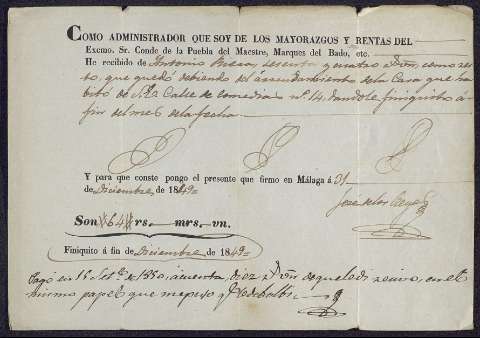 COMO ADMINISTRADOR QUE SOY DE LOS MAYORAZGOS Y RENTAS DEL
Excmo. Sr. Conde de la Puebla del Maestre, Marques del Bado, etc.
He recibido de Antonio sesenta y cuatro rs. vn., como res
to, que quedó debiendo del arrendamiento de la Casa que ha
bitó de S.E. Calle de Comedias nº. 14, dandole finiquito á
fin del mes de la fecha.
Y para que conste pongo el presente que firmo en Málaga á 31
de Diciembre de 1849=
José de los Reyes
Son #64# rs. mrs. vn.
Finiquito á fin de Diciembre de 1849=
Pagó en 18 Set.e de 1850, á cuenta, diez rs. vn. de que le di recivo, en el
mismo papel que me puso